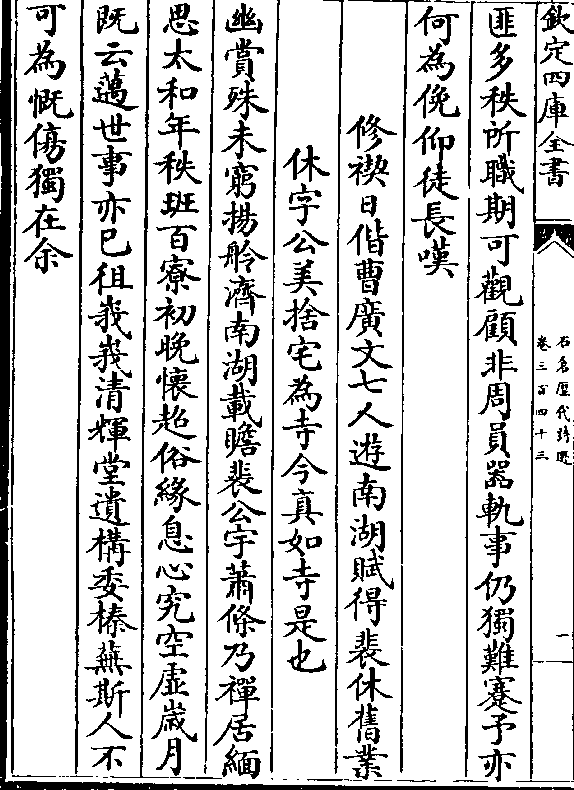 欽定四庫全書
石倉歷代詩選
卷三百四十三
一
匪多秩所職期可觀顧非周員器軌事仍獨難蹇予亦
何為俛仰徒長嘆
修禊日偕曹廣文七人遊南湖賦得裴休舊業
休字公美捨宅為寺今真如寺是也
幽賞殊未窮揚舲濟南湖載瞻裴公宇蕭條乃禪居緬
思太和年秩班百寮初晚懷超俗緣息心究空虛歲月
既云邁世事亦已徂峩峩清輝堂遺構委榛蕪斯人不
可為慨傷獨在余